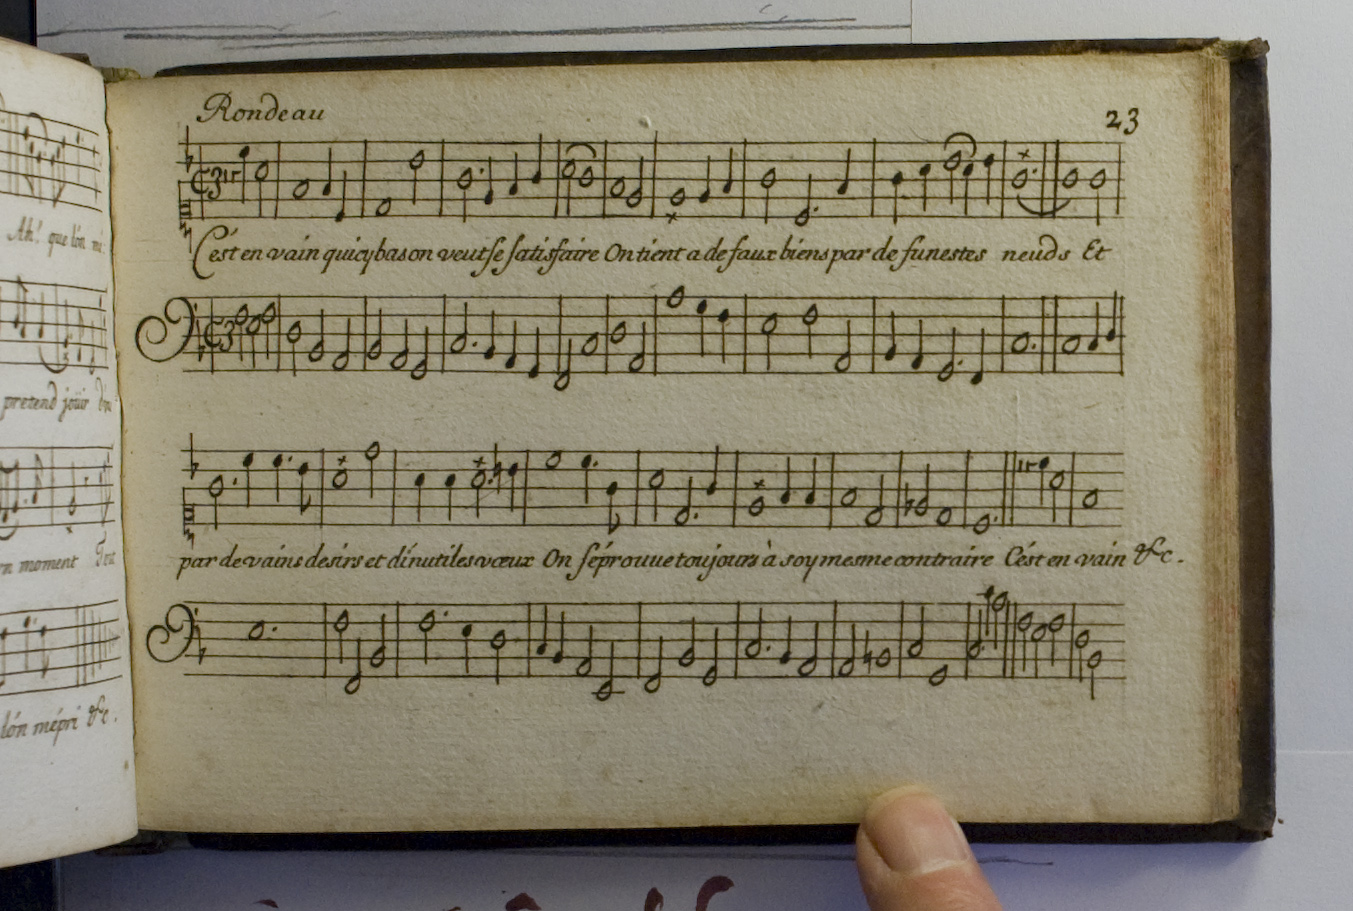 Rondeau
23
C'est en vain qu'icy bas on veut se satisfaire On tient a de faux biens par de funestes neuds Et
par de vains desirs et d'inutiles vœux On s'éprouve toujours à soy mesme contraire C'est en vain &c.
Ah! que l'on
pretend joüir
moment Tout
l'ón mépri &c.